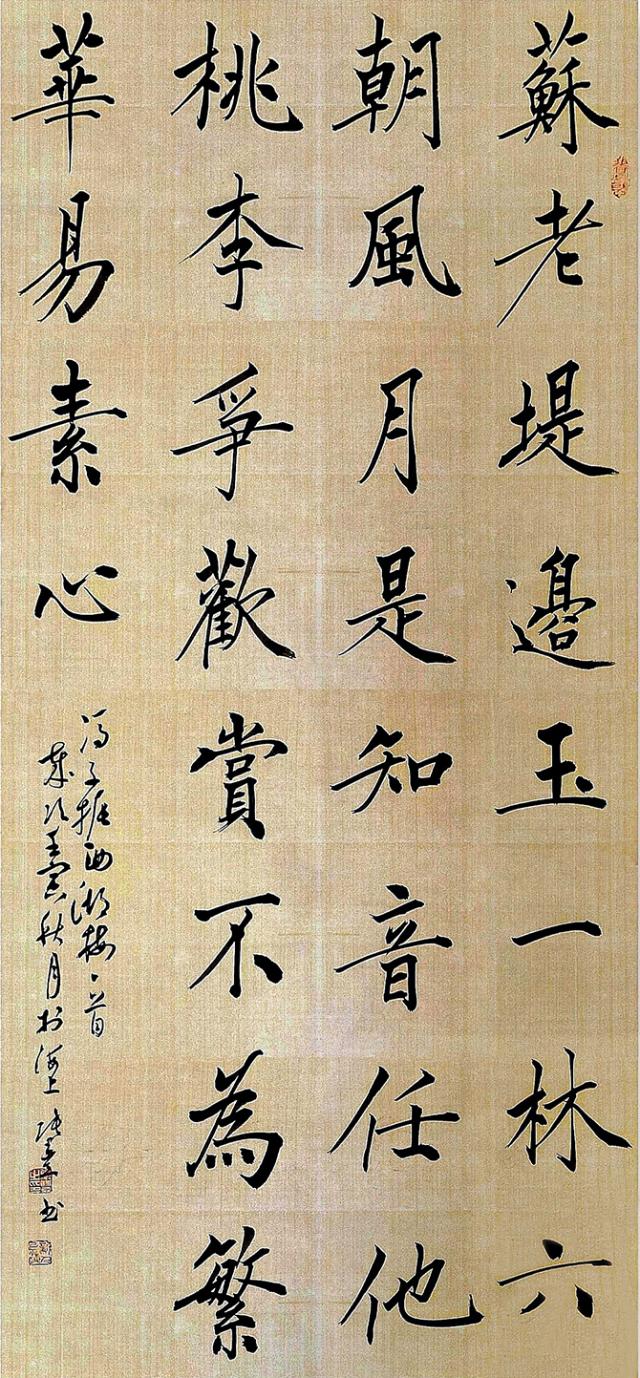 蘇老堤邊玉一林六
朝風月是知音任他
桃李爭歡賞不為繁
華易素心
馮子振西湖梅一首
歲次壬寅秋月於海上
書